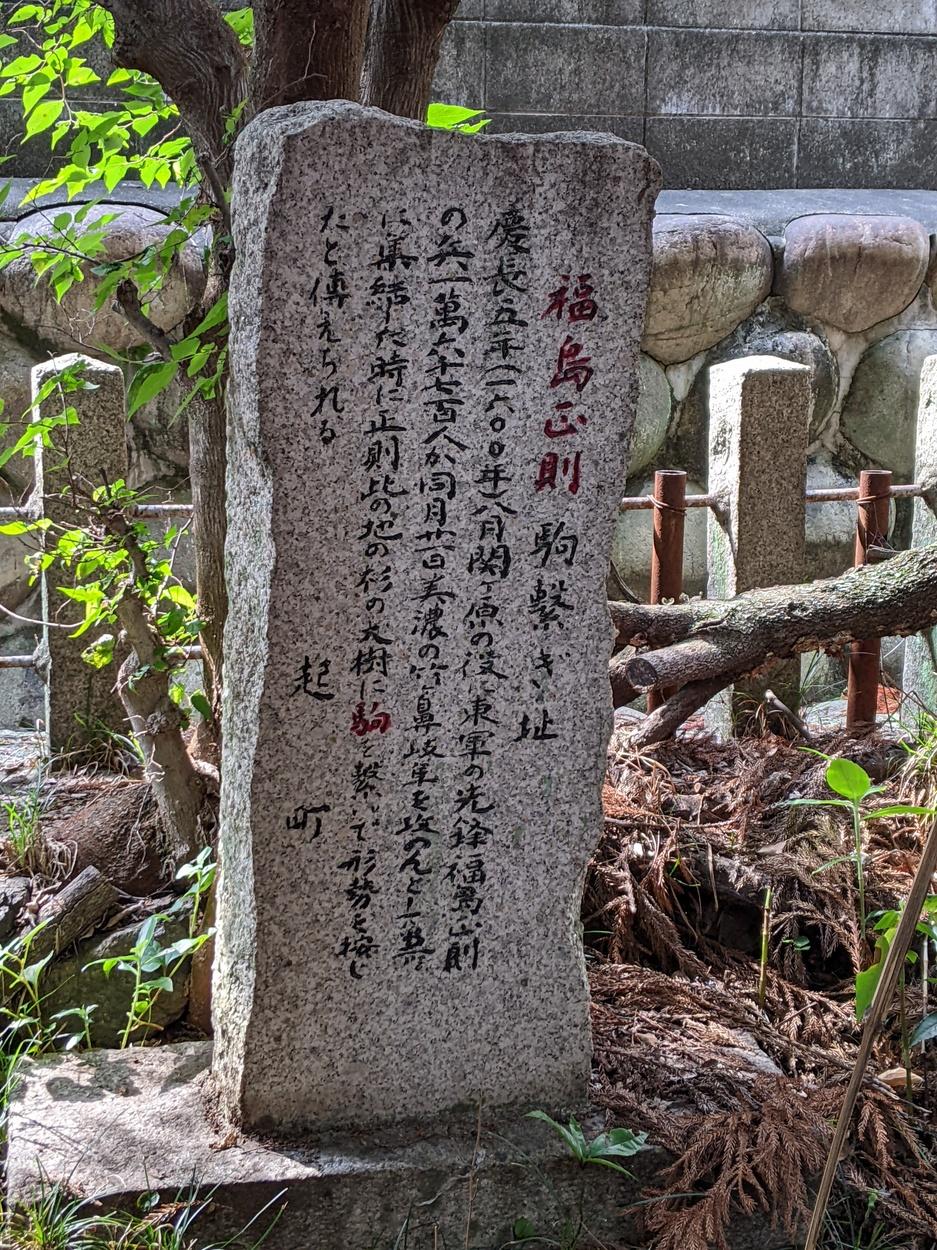 福島正則駒繋ぎ址
慶長五年(一六〇〇年)八月関ヶ原の役に東軍の先鋒福島正則
の兵一萬六千七百人が同月廿一日美濃の竹ヶ鼻岐阜を攻めんと
に集結した時に正則此の地の杉の大樹に駒を繋いで形勢を按じ
たと傳えられる
起町